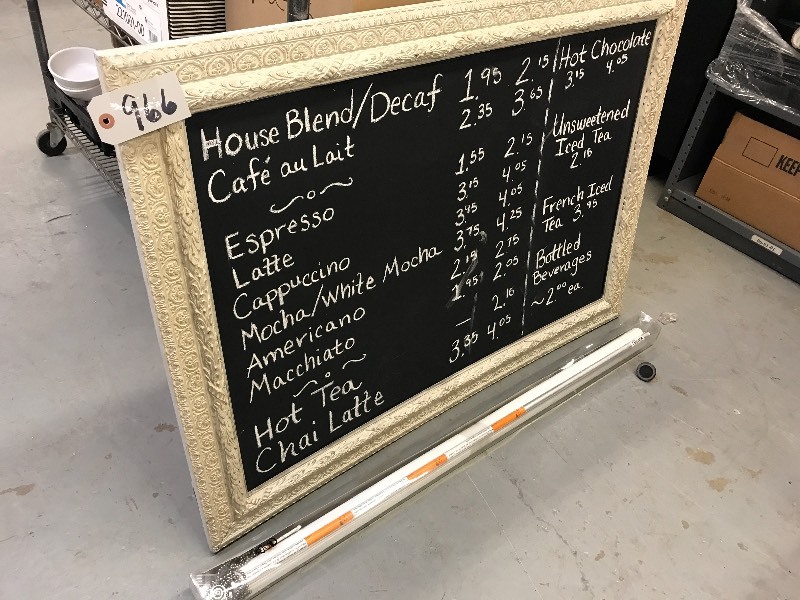 966
House Blend/Decaf 1.95 2.15
Café au Lait 2.35 3.65
Espresso 1.55 2.15
Latte 3.15 4.05
Cappuccino 3.45 4.05
Mocha/White Mocha 3.75 4.25
Americano 2.15 2.75
Macchiato 1.95 2.05
Hot Tea — 2.16
Chai Latte 3.35 4.05
Hot Chocolate
3.15 4.05
Unsweetened
Iced Tea
2.16
French Iced
Tea 3.95
Bottled
Beverages
~2.00 ea.
KEEP